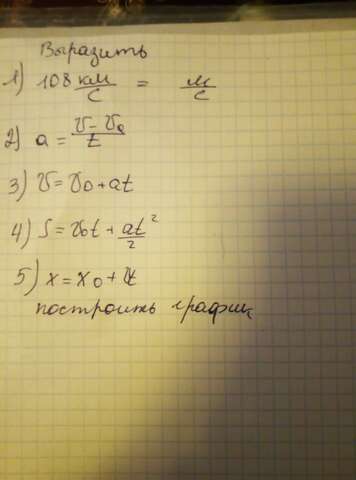 Выразить
1) 108 км/с = м/с
2) a = v - v₀/t
3) v = v₀ + at
4) S = v₀t + at²/2
5) x = x₀ + vt
построить график